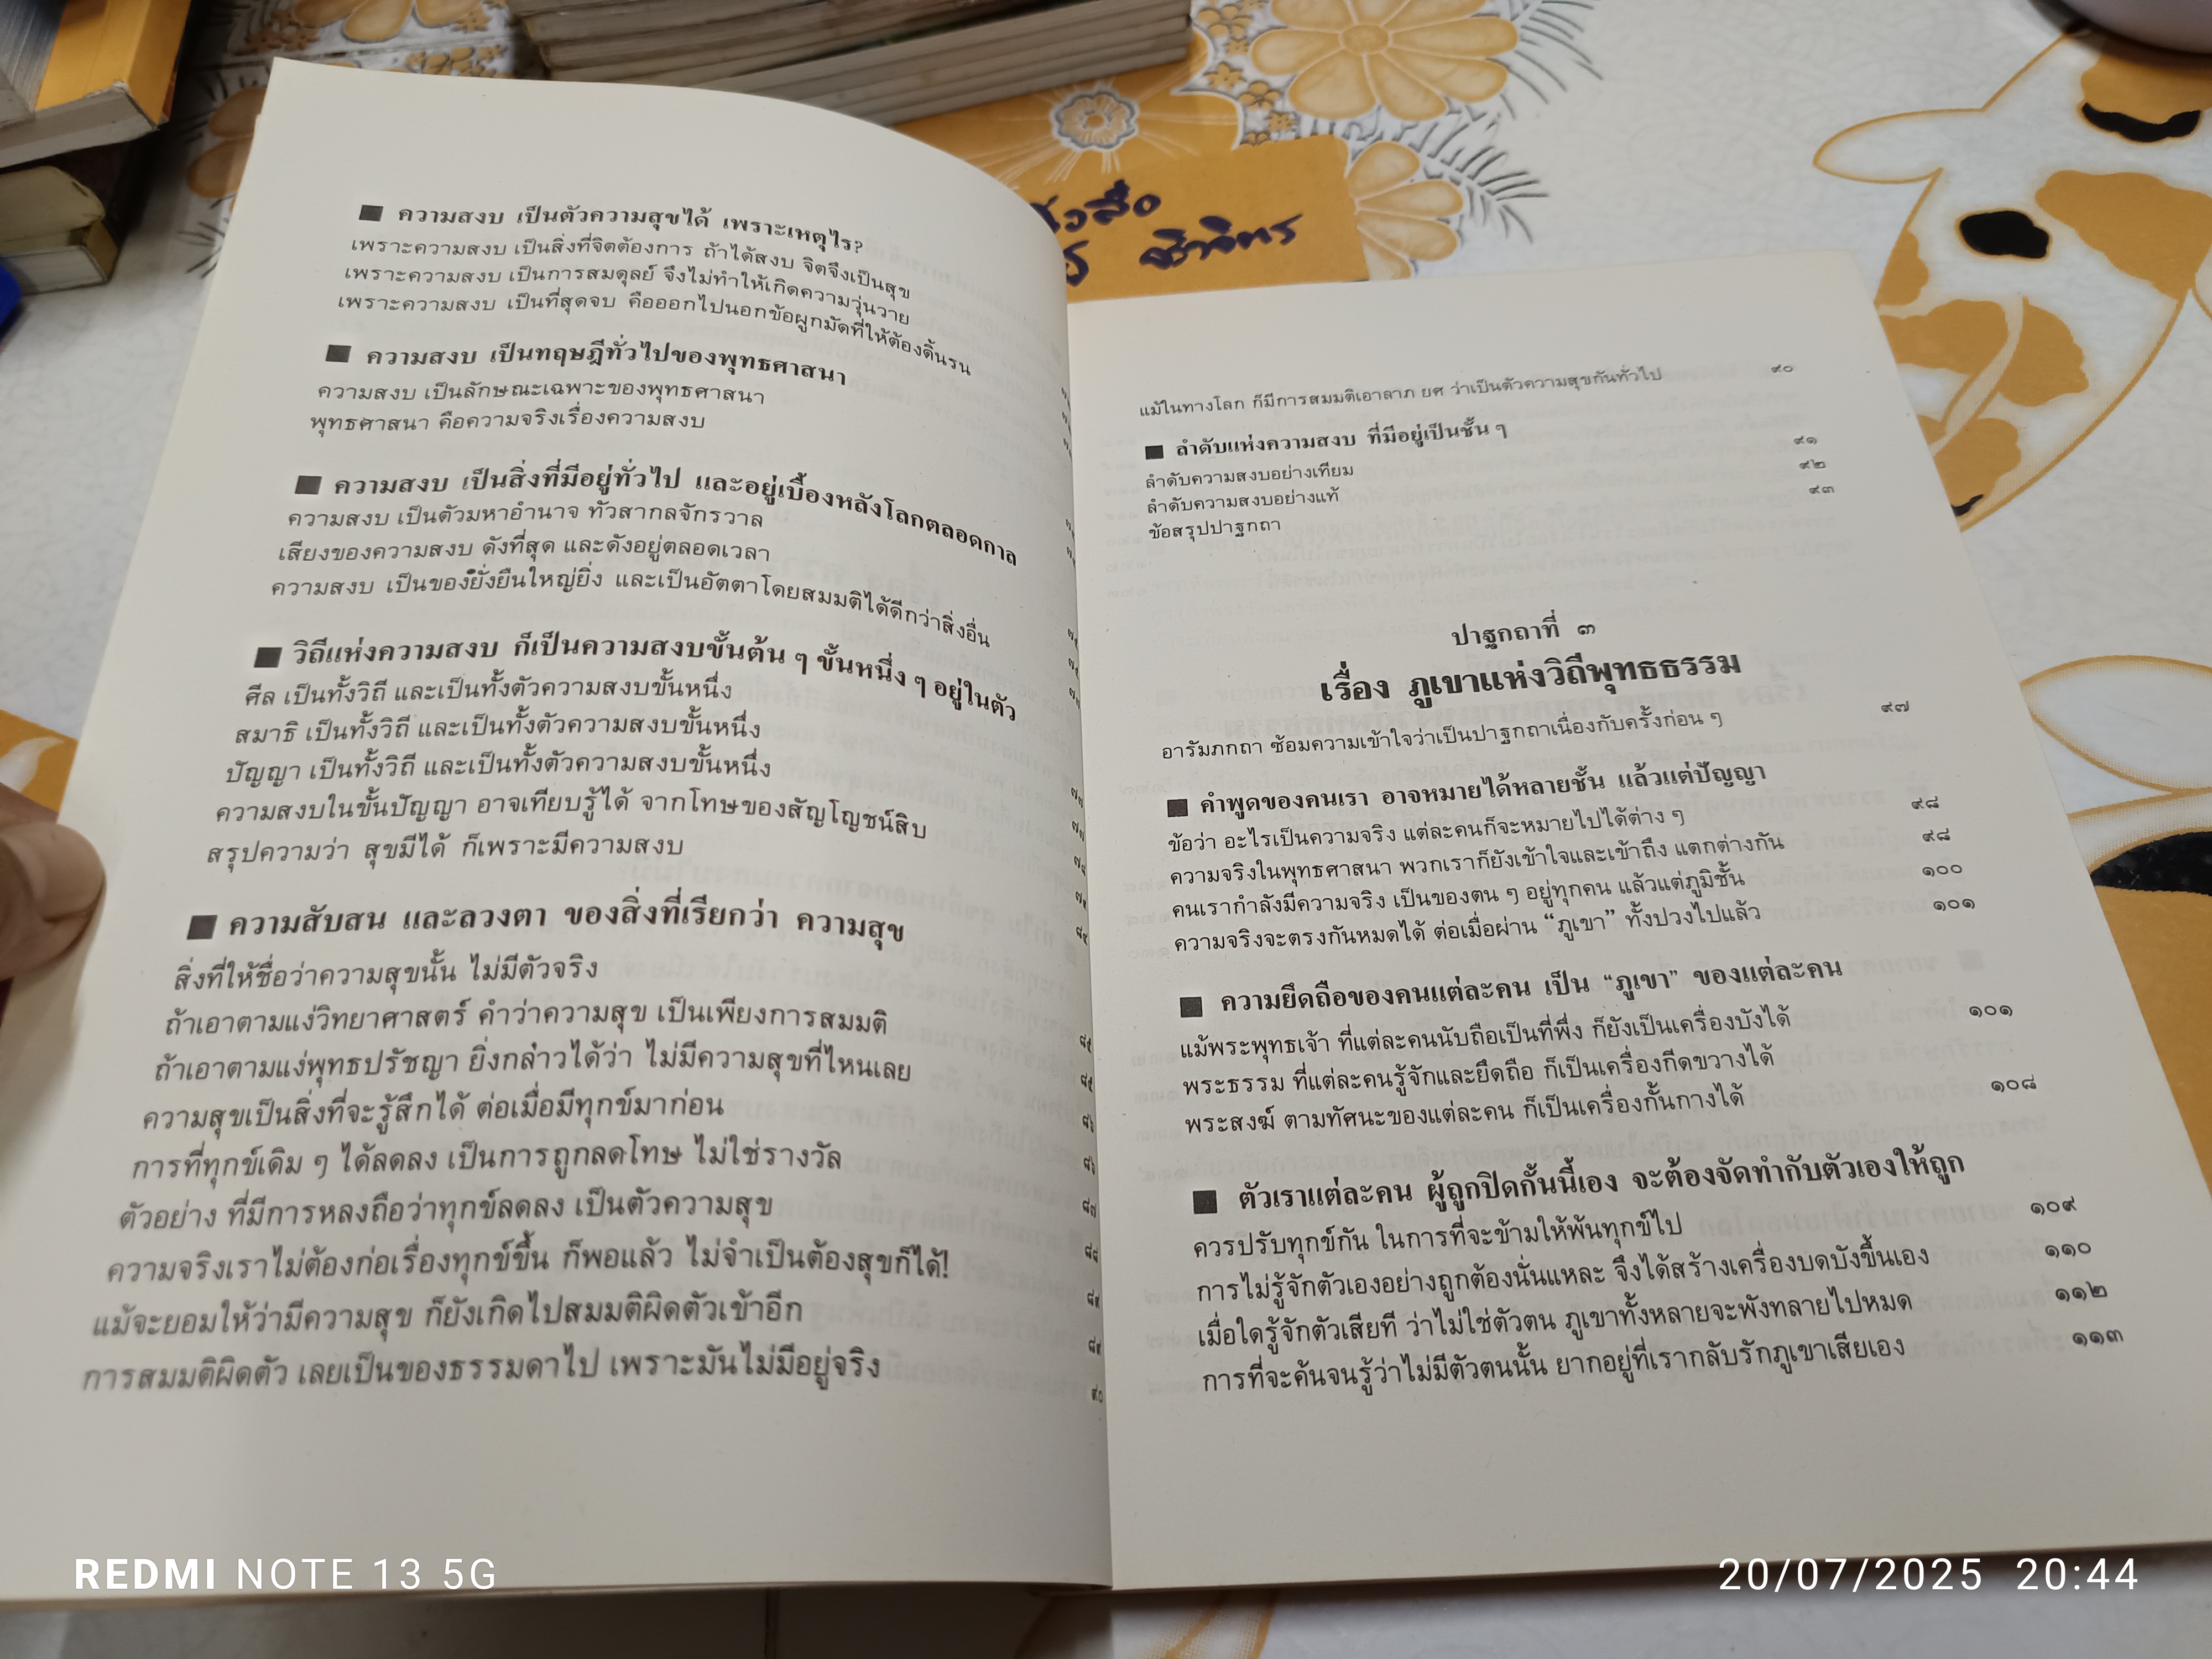 ■ ความสงบ เป็นตัวความสุขได้ เพราะเหตุไร?
เพราะความสงบ เป็นสิ่งที่จิตต้องการ ถ้าได้สงบ จิตจึงเป็นสุข
เพราะความสงบ เป็นการสมดุลย์ จึงไม่ทำให้เกิดความวุ่นวาย
เพราะความสงบ เป็นที่สุดจบ คือออกไปนอกข้อผูกมัดที่ให้ต้องดิ้นรน
■ ความสงบ เป็นทฤษฎีทั่วไปของพุทธศาสนา
ความสงบ เป็นลักษณะเฉพาะของพุทธศาสนา
พุทธศาสนา คือความจริงเรื่องความสงบ
■ ความสงบ เป็นสิ่งที่มีอยู่ทั่วไป และอยู่เบื้องหลังโลกตลอดกาล
ความสงบ เป็นตัวมหาอำนาจ ทั่วสากลจักรวาล
เสียงของความสงบ ดังที่สุด และดังอยู่ตลอดเวลา
ความสงบ เป็นของยั่งยืนใหญ่ยิ่ง และเป็นอัตตาโดยสมมติได้ดีกว่าสิ่งอื่น
■ วิถีแห่งความสงบ ก็เป็นความสงบขั้นต้น ๆ ขั้นหนึ่ง ๆ อยู่ในตัว
ศีล เป็นทั้งวิถี และเป็นทั้งตัวความสงบขั้นหนึ่ง
สมาธิ เป็นทั้งวิถี และเป็นทั้งตัวความสงบขั้นหนึ่ง
ปัญญา เป็นทั้งวิถี และเป็นทั้งตัวความสงบขั้นหนึ่ง ๗๗
ความสงบในขั้นปัญญา อาจเทียบรู้ได้ จากโทษของสัญโญชน์สิบ ๗๗
สรุปความว่า สุขมีได้ ก็เพราะมีความสงบ
■ ความสับสน และลวงตา ของสิ่งที่เรียกว่า ความสุข
สิ่งที่ให้ชื่อว่าความสุขนั้น ไม่มีตัวจริง
ถ้าเอาตามแง่วิทยาศาสตร์ คำว่าความสุข เป็นเพียงการสมมติ ๘๕
ถ้าเอาตามแง่พุทธปรัชญา ยิ่งกล่าวได้ว่า ไม่มีความสุขที่ไหนเลย ๘๕
ความสุขเป็นสิ่งที่จะรู้สึกได้ ต่อเมื่อมีทุกข์มาก่อน ๘๖
การที่ทุกข์เดิม ๆ ได้ลดลง เป็นการถูกลดโทษ ไม่ใช่รางวัล ๘๖
ตัวอย่าง ที่มีการหลงถือว่าทุกข์ลดลง เป็นตัวความสุข ๘๗
ความจริงเราไม่ต้องก่อเรื่องทุกข์ขึ้น ก็พอแล้ว ไม่จำเป็นต้องสุขก็ได้! ๘๘
แม้จะยอมให้ว่ามีความสุข ก็ยังเกิดไปสมมติผิดตัวเข้าอีก ๘๙
การสมมติผิดตัว เลยเป็นของธรรมดาไป เพราะมันไม่มีอยู่จริง ๘๙
๙๐
แม้ในทางโลก ก็มีการสมมติเอาลาภ ยศ ว่าเป็นตัวความสุขกันทั่วไป ๙๐
■ ลำดับแห่งความสงบ ที่มีอยู่เป็นชั้น ๆ
ลำดับความสงบอย่างเทียม ๙๑
ลำดับความสงบอย่างแท้ ๙๒
ข้อสรุปปาฐกถา ๙๓
ปาฐกถาที่ ๓
เรื่อง ภูเขาแห่งวิถีพุทธธรรม
อารัมภกถา ซ้อมความเข้าใจว่าเป็นปาฐกถาเนื่องกับครั้งก่อน ๆ ๙๗
■ คำพูดของคนเรา อาจหมายได้หลายชั้น แล้วแต่ปัญญา
ข้อว่า อะไรเป็นความจริง แต่ละคนก็จะหมายไปได้ต่าง ๆ ๙๘
ความจริงในพุทธศาสนา พวกเราก็ยังเข้าใจและเข้าถึง แตกต่างกัน ๙๘
คนเรากำลังมีความจริง เป็นของตน ๆ อยู่ทุกคน แล้วแต่ภูมิชั้น ๑๐๐
ความจริงจะตรงกันหมดได้ ต่อเมื่อผ่าน “ภูเขา” ทั้งปวงไปแล้ว ๑๐๑
■ ความยึดถือของคนแต่ละคน เป็น “ภูเขา” ของแต่ละคน
แม้พระพุทธเจ้า ที่แต่ละคนนับถือเป็นที่พึ่ง ก็ยังเป็นเครื่องบังได้ ๑๐๑
พระธรรม ที่แต่ละคนรู้จักและยึดถือ ก็เป็นเครื่องกีดขวางได้
พระสงฆ์ ตามทัศนะของแต่ละคน ก็เป็นเครื่องกั้นกางได้ ๑๐๘
■ ตัวเราแต่ละคน ผู้ถูกปิดกั้นนี้เอง จะต้องจัดทำกับตัวเองให้ถูก
ควรปรับทุกข์กัน ในการที่จะข้ามให้พ้นทุกข์ไป ๑๐๙
การไม่รู้จักตัวเองอย่างถูกต้องนั่นแหละ จึงได้สร้างเครื่องบดบังขึ้นเอง ๑๑๐
เมื่อใดรู้จักตัวเสียที ว่าไม่ใช่ตัวตน ภูเขาทั้งหลายจะพังทลายไปหมด ๑๑๒
การที่จะค้นจนรู้ว่าไม่มีตัวตนนั้น ยากอยู่ที่เรากลับรักภูเขาเสียเอง ๑๑๓
REDMI NOTE 13 5G
20/07/2025 20:44